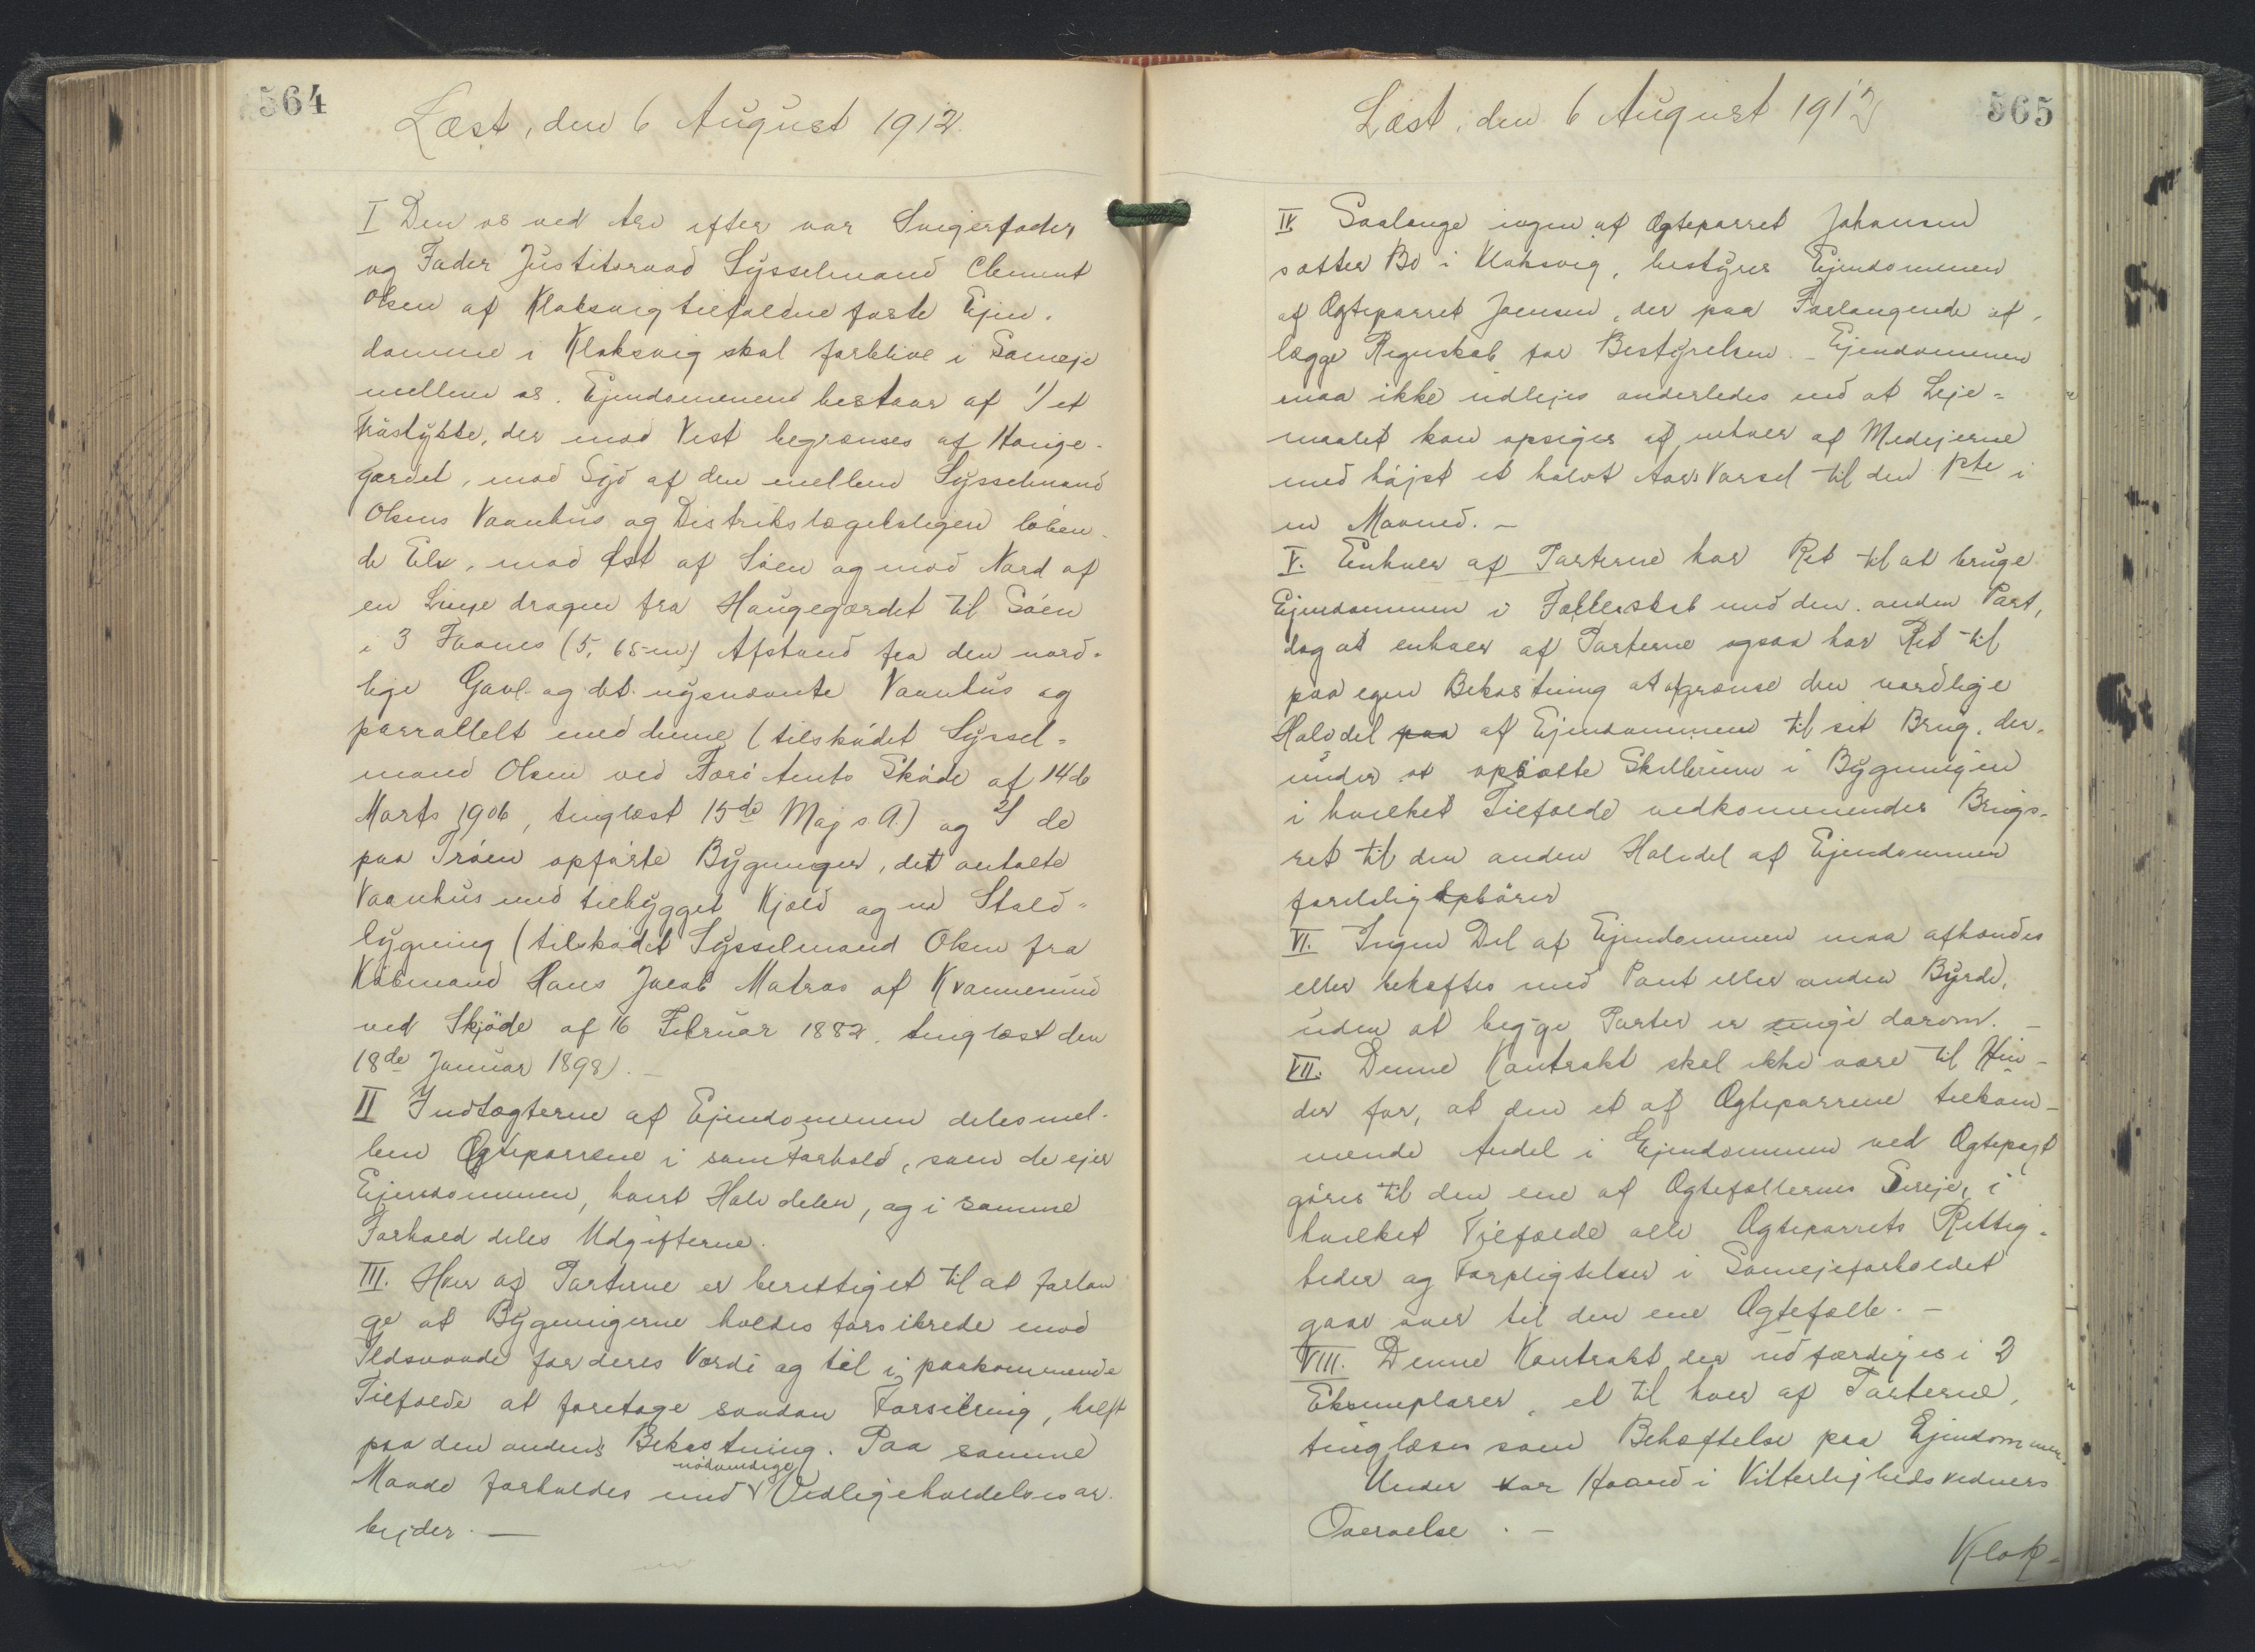 564
Læst, den 6 August 1912.
I Den os ved Arv efter vor Svigerfader
og Fader Justitsraad Sysselmand Clement
Olsen af Klaksvig tilfaldne faste Ejen-
domme i Klaksvig skal forblive i Sameje
mellem os. Ejendommen bestaar af 1/ et
Trøstykke, der mod Vest begrænses af Hauge-
gærdet, mod Syd af den mellem Sysselmand
Olsens Vaanhus og Distriktslægeboligen løben-
de Elv, mod Øst af Søen og mod Nord af
en Linje dragen fra Haugegærdet til Søen
i 3 Favnes (5,65 m) Afstand fra den nord-
lige Gavl og det nysnævnte Vaanhus og
parrallelt med denne (tilskødet Syssel-
mand Olsen ved Færø Amts Skøde af 14de
Marts 1906, tinglæst 15de Maj s. A.) og 2/ de
paa Trøen opførte Bygninger, det omtalte
Vaanhus med tilbygget Kjæld og en Stald-
bygning (tilskødet Sysselmand Olsen fra
Købmand Hans Jacob Matras af Kvannesund
ved Skjøde af 16 Februar 1882, tinglæst den
18de Januar 1898). —
II Indtægterne af Ejendommen deles mel-
lem Ægteparrene i samforhold, som de ejer
Ejendommen, hvert Halvdelen, og i samme
Forhold deles Udgifterne.
III. Hver af Parterne er berettiget til at forlan
ge at Bygningerne holdes forsikrede mod
Ildsvaade for deres Værdi og til i paakommende
Tilfælde at foretage saadan Forsikring, halft
paa den andens Bekostning. Paa samme
Maade forholdes med nødvendige Vedligeholdelsesar-
bejder. —
565
Læst, den 6 August 1912
IV. Saalænge ingen af Ægteparret Johansen
sætter Bo i Klaksvig, bestyres Ejendommen
af Ægteparret Joensen, der paa Forlangende af-
lægge Regnskab for Bestyrelsen. - Ejendommen
maa ikke udlejes anderledes end at Leje=
maalet kan opsiges af enhver af Medejerne
med højst et halvt Aars Varsel til den 1ste i
en Maaned. —
V. Enhver af Parterne har Ret til at bruge
Ejendommen i Fællesskab med den anden Part,
dog at enhver af Parterne ogsaa har Ret til
paa egen Bekostning at afgrænse den nordlige
Halvdel paa af Ejendommen til sit Brug, der-
under at opsætte Skillerum i Bygningen
i hvilket Tilfælde vedkommendes Brugs-
ret til den anden Halvdel af Ejendommen
foreløbig ophører
VI. Ingen Del af Ejendommen maa afhændes
eller behæftes med Pant eller anden Byrde,
uden at begge Parter er enige derom. —
VII. Denne Kontrakt skal ikke være til Hin-
der for, at den et af Ægteparrene tilkom-
mende Andel i Ejendommen ved Ægtepagt
gøres til den ene af Ægtefællernes Særeje, i
hvilket Tilfælde alle Ægteparrets Rettig-
heder og Forpligtelser i Samejeforholdet
gaar over til den ene Ægtefælle. —
VIII. Denne Kontrakt, der udfærdiges i 2
Eksemplarer, et til hver af Parterne,
tinglæses som Behæftelse paa Ejendommen.
Under vor Haand i Vitterlighedsvidners
Overvelse. —
Klak-